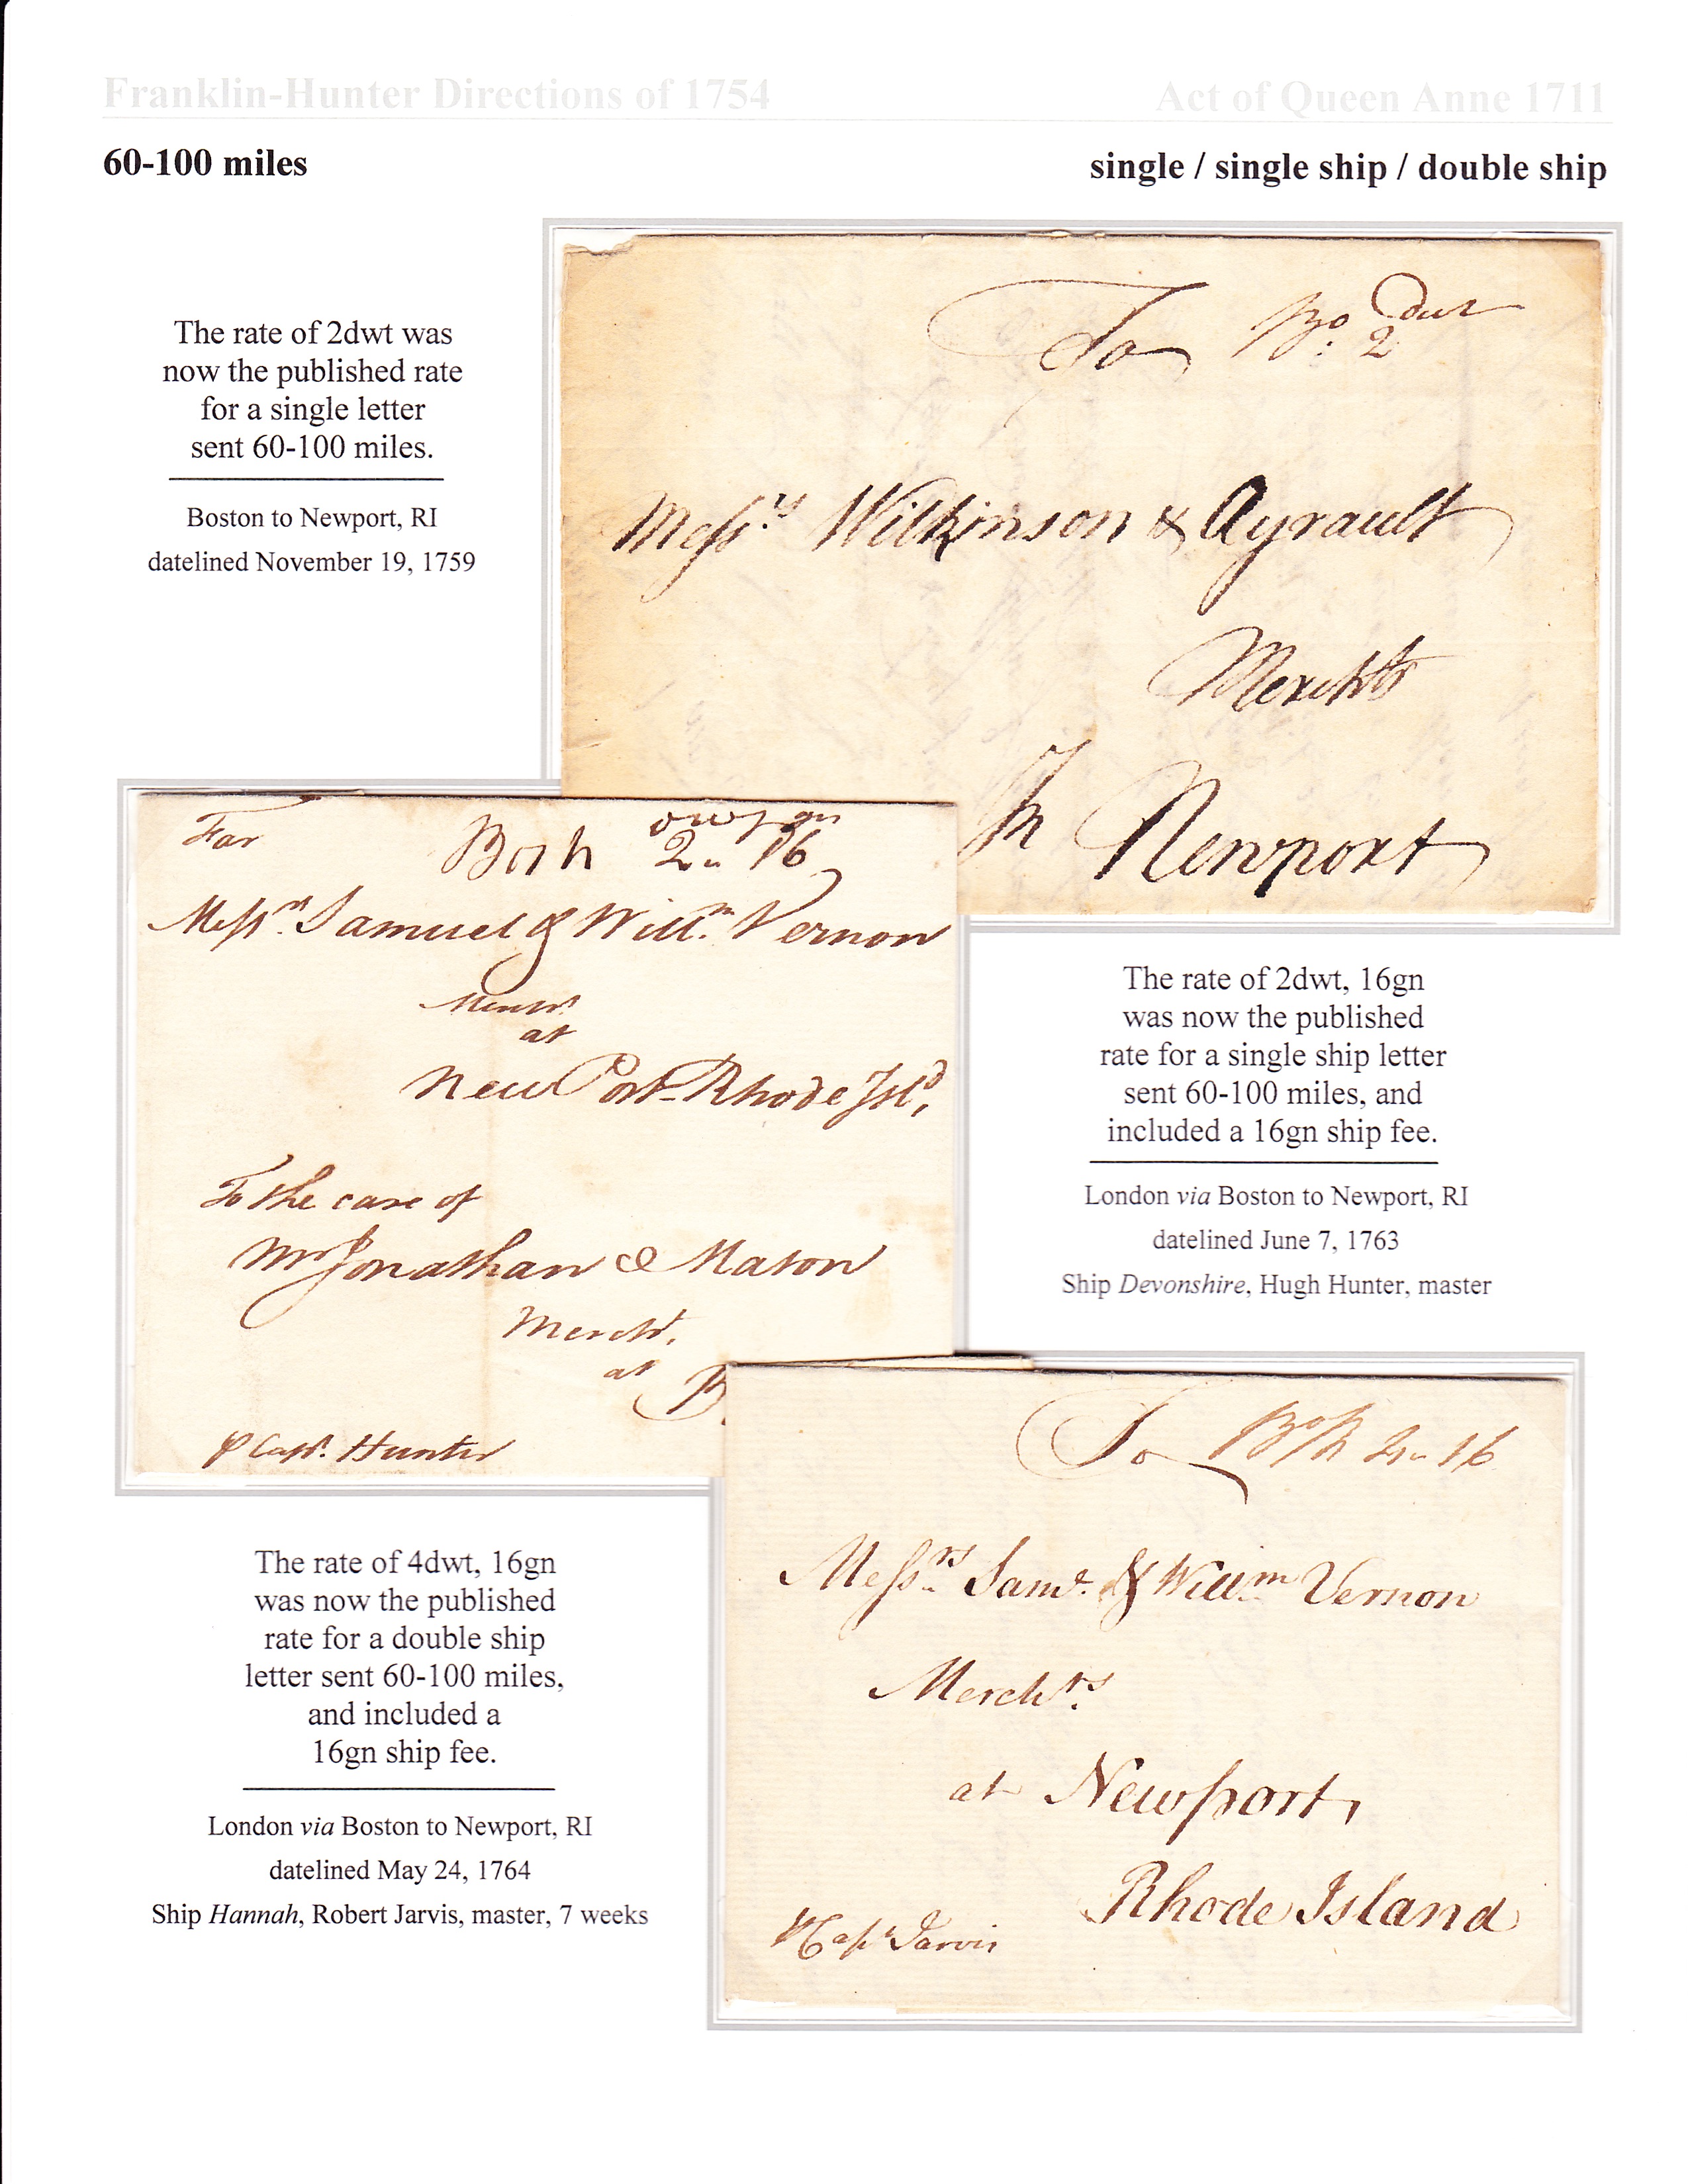 Franklin-Hunter Directions of 1754
Act of Queen Anne 1711
60-100 miles
single / single ship / double ship
The rate of 2dwt was
now the published rate
for a single letter
sent 60-100 miles.
Boston to Newport, RI
datelined November 19, 1759
To Bo: 2 dwt
Messrs Wilkinson & Ayrault
Merchts
In Newport
For
Bosn 2 " 16
dwt gn
Messrs Samuel & Willm. Vernon
at
New Port Rhode Isld,
To the care of
Mr Jonathan Mason
Mercht.
at B
p Capt. Hunter
The rate of 2dwt, 16gn
was now the published
rate for a single ship letter
sent 60-100 miles, and
included a 16gn ship fee.
London via Boston to Newport, RI
datelined June 7, 1763
Ship Devonshire, Hugh Hunter, master
The rate of 4dwt, 16gn
was now the published
rate for a double ship
letter sent 60-100 miles,
and included a
16gn ship fee.
London via Boston to Newport, RI
datelined May 24, 1764
Ship Hannah, Robert Jarvis, master, 7 weeks
To 16
Messrs Saml. & Willm Vernon
Merchts.
at Newport,
Rhode Island
Capt Jarvis